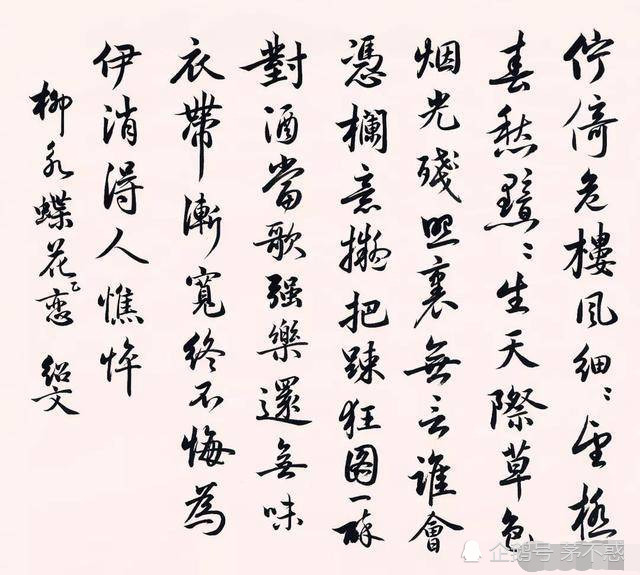 伫倚危樓風细〻望極
春愁黯〻生天際草色
烟光殘照裏無言谁會
憑欄意擬把踈狂圖一醉
對酒當歌强樂還無味
衣帶漸寬终不悔為
伊消得人憔悴
柳永蝶花恋 绍文
企鹅号 茅不惑